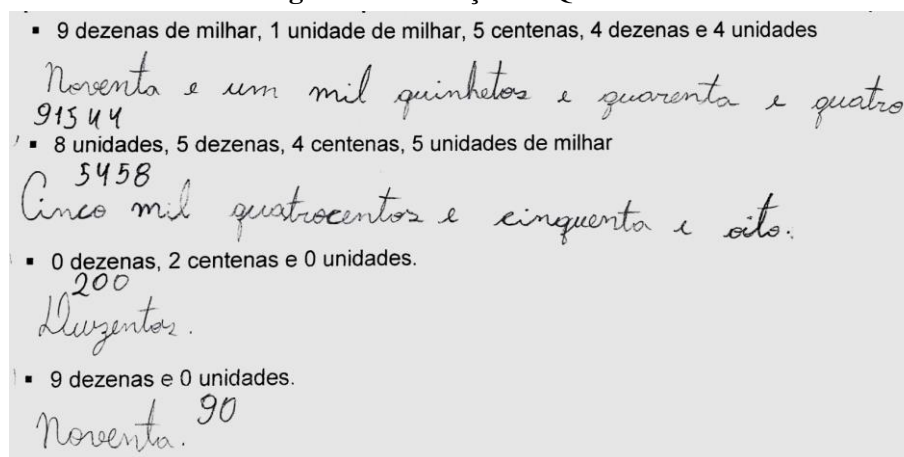 ▪ 9 dezenas de milhar, 1 unidade de milhar, 5 centenas, 4 dezenas e 4 unidades
Noventa e um mil quinhetos e quarenta e quatro
91544
▪ 8 unidades, 5 dezenas, 4 centenas, 5 unidades de milhar
5458
Cinco mil quatrocentos e cinquenta e oito.
▪ 0 dezenas, 2 centenas e 0 unidades.
200
Duzentos.
▪ 9 dezenas e 0 unidades.
Noventa. 90